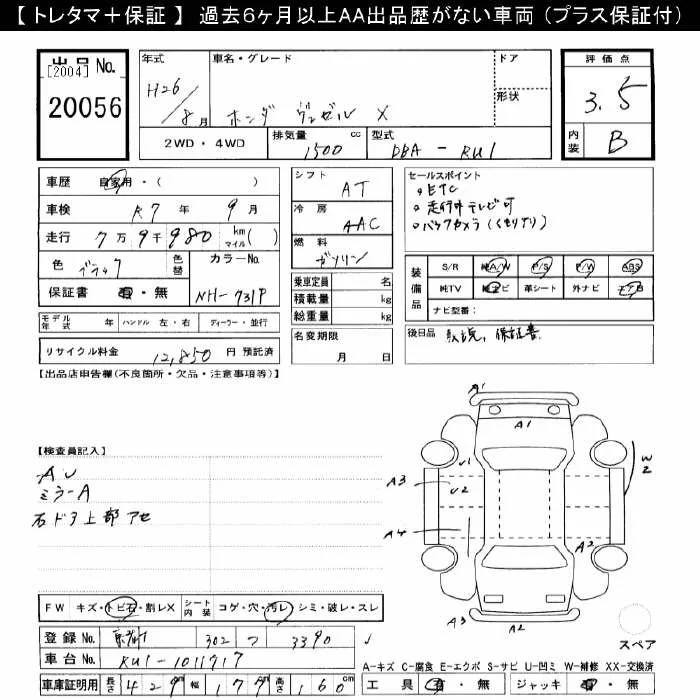 【 トレタマ＋保証 】 過去6ヶ月以上AA出品歴がない車両 (プラス保証付)
出品 No.
[2004]
20056
年式
H26/8月
車名・グレード
ホンダ ヴェゼル X
ドア
形状
2WD・4WD
排気量 1500 cc
型式 DBA-RU1
評価点
3.5
内装 B
車歴 自家用・( )
車検 R7年 9月
走行 7万9千980 km マイル( )
色 ブラック
色替
カラーNo.
NH-731P
保証書 有・無
モデル年式 年 ハンドル 左・右 ディーラー・並行
リサイクル料金 12,850 円 預託済
シフト AT
冷房 AAC
燃料 ガソリン
乗車定員 名
積載量 kg
総重量 kg
名変期限
月 日
セールスポイント
◦ ETC
◦ 走行中テレビ可
◦ バックカメラ (くもりアリ)
装備品
S/R 純A/W P/S P/W ABS
純TV 純ナビ 革シート 外ナビ エアB
ナビ型番：
後日品 取説, 保証書
【出品店申告欄(不良箇所・欠品・注意事項等)】
【検査員記入】
AU
ミラーA
右ドア上部 アセ
A1
A1
A3
U1
U2
A4
W2
A2
A3
A2
スペア
FW キズ・トビ石・割レX
シート内装 コゲ・穴・汚レ・シミ・破レ・スレ
登録 No. 京都 302 つ 3390
車台 No. RU1-1011717
車庫証明用 長さ 429 cm 幅 177 cm 高さ 160 cm
A-キズ C-腐食 E-エクボ S-サビ U-凹ミ W-補修 XX-交換済
工具 有・無 ジャッキ 有・無